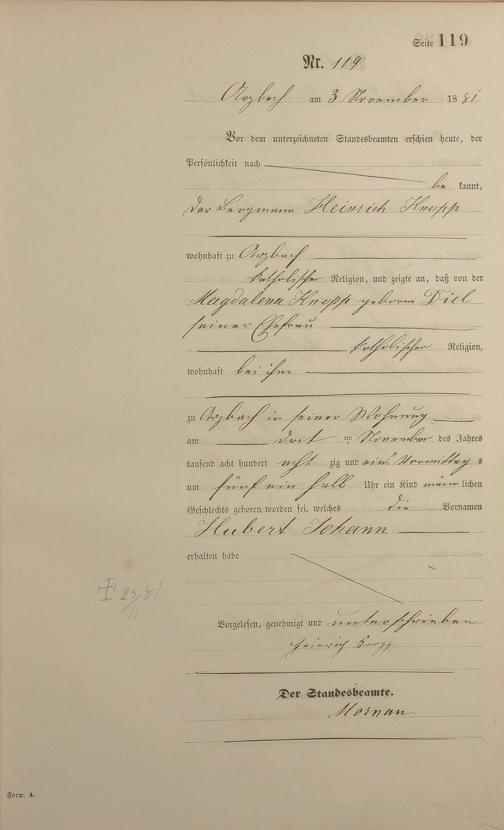 Seite 119
Nr. 119
Arzbach am 3 November 1881
Vor dem unterzeichneten Standesbeamten erschien heute, der
Persönlichkeit nach
be kannt,
der Bergmann Heinrich Knopp
wohnhaft zu Arzbach
katholischer Religion, und zeigte an, daß von der
Magdalena Knopp geborene Diel
seiner Ehefrau
katholischer Religion,
wohnhaft bei ihm
zu Arzbach in seiner Wohnung
am drit ten November des Jahres
tausend acht hundert acht zig und eins Vormittags
um fünf ein halb Uhr ein Kind männ lichen
Geschlechts geboren worden sei, welches die Vornamen
Hubert Johann
erhalten habe
23/11 81
Vorgelesen, genehmigt und unterschrieben
Heinrich Knopp
Der Standesbeamte.
Form. A.